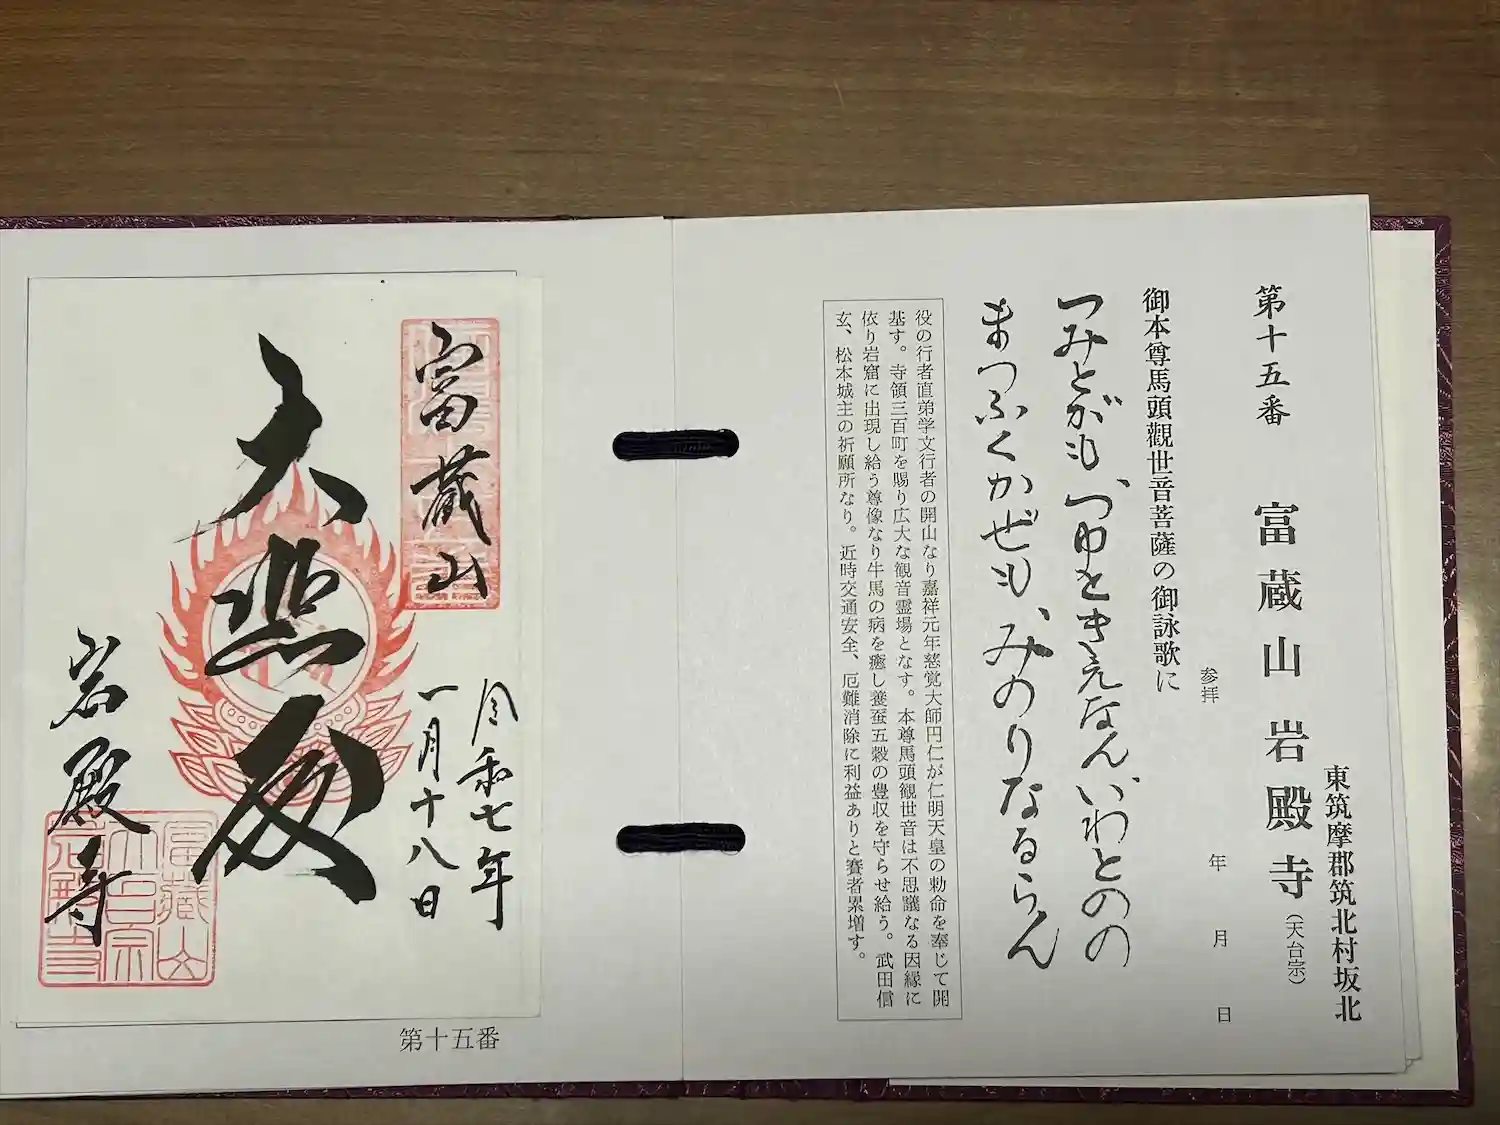 東筑摩郡筑北村坂北
第十五番 富蔵山岩殿寺(天台宗)
参拝 年 月 日
御本尊馬頭觀世音菩薩の御詠歌に
つみとがも、つゆときえなん、いわとのの
まつふくかぜも、みのりなるらん
役の行者直弟学文行者の開山なり嘉祥元年慈覚大師円仁が仁明天皇の勅命を奉じて開
基す。寺領三百町を賜り広大な観音霊場となす。本尊馬頭観世音は不思議なる因縁に
依り岩窟に出現し給う尊像なり牛馬の病を癒し養蚕五穀の豊収を守らせ給う。武田信
玄、松本城主の祈願所なり。近時交通安全、厄難消除に利益ありと賽者累増す。
富蔵山
令和七年
一月十八日
大悲殿
岩殿寺
富蔵山
天台宗
岩殿寺
第十五番